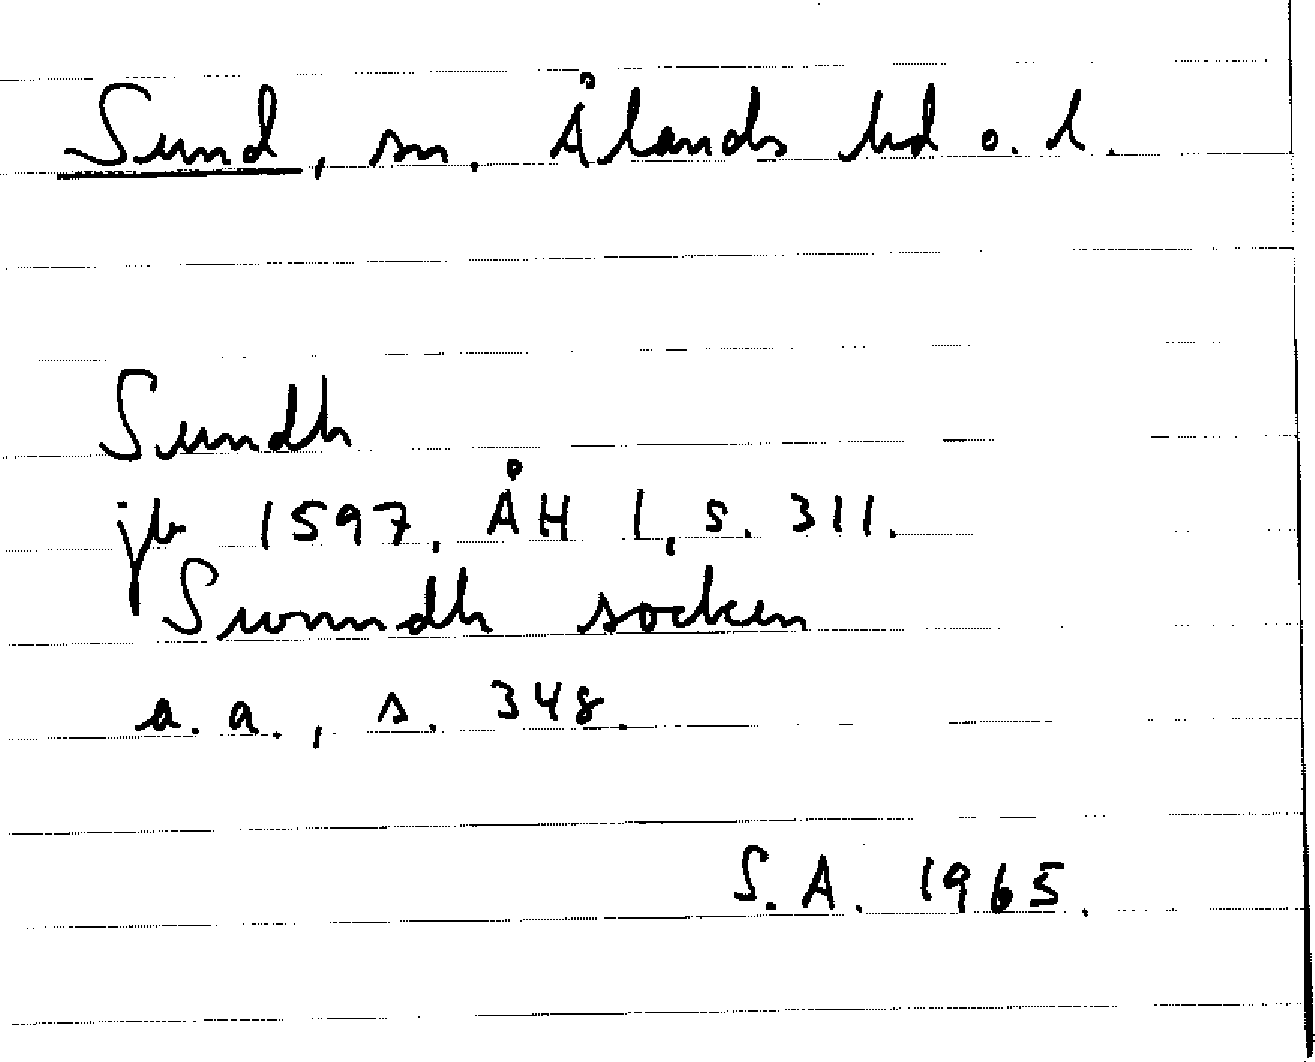 Sund, sn. Ålands hd o. l.
Sundh
jb 1597, ÅH I, s. 311.
Swnndh socken
a. a., s. 348.
S.A. 1965.